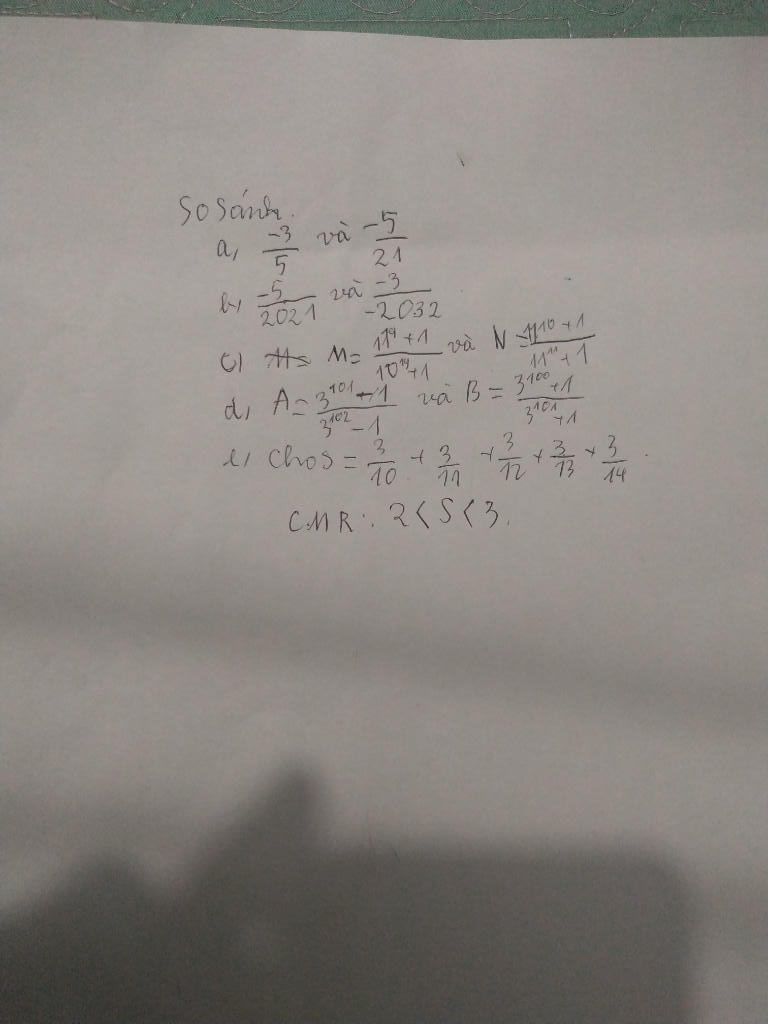 So Sánh.
a, -3/5 và -5/21
b, -5/2021 và -3/-2032
c) M= 11¹⁹+1/10¹⁹+1 và N= 11¹⁰+1/11¹¹+1
d, A= 3¹⁰¹-1/3¹⁰²-1 và B= 3¹⁰⁰+1/3¹⁰¹+1
e, Cho S= 3/10 + 3/11 + 3/12 + 3/13 + 3/14.
C.M.R: 2<S<3.